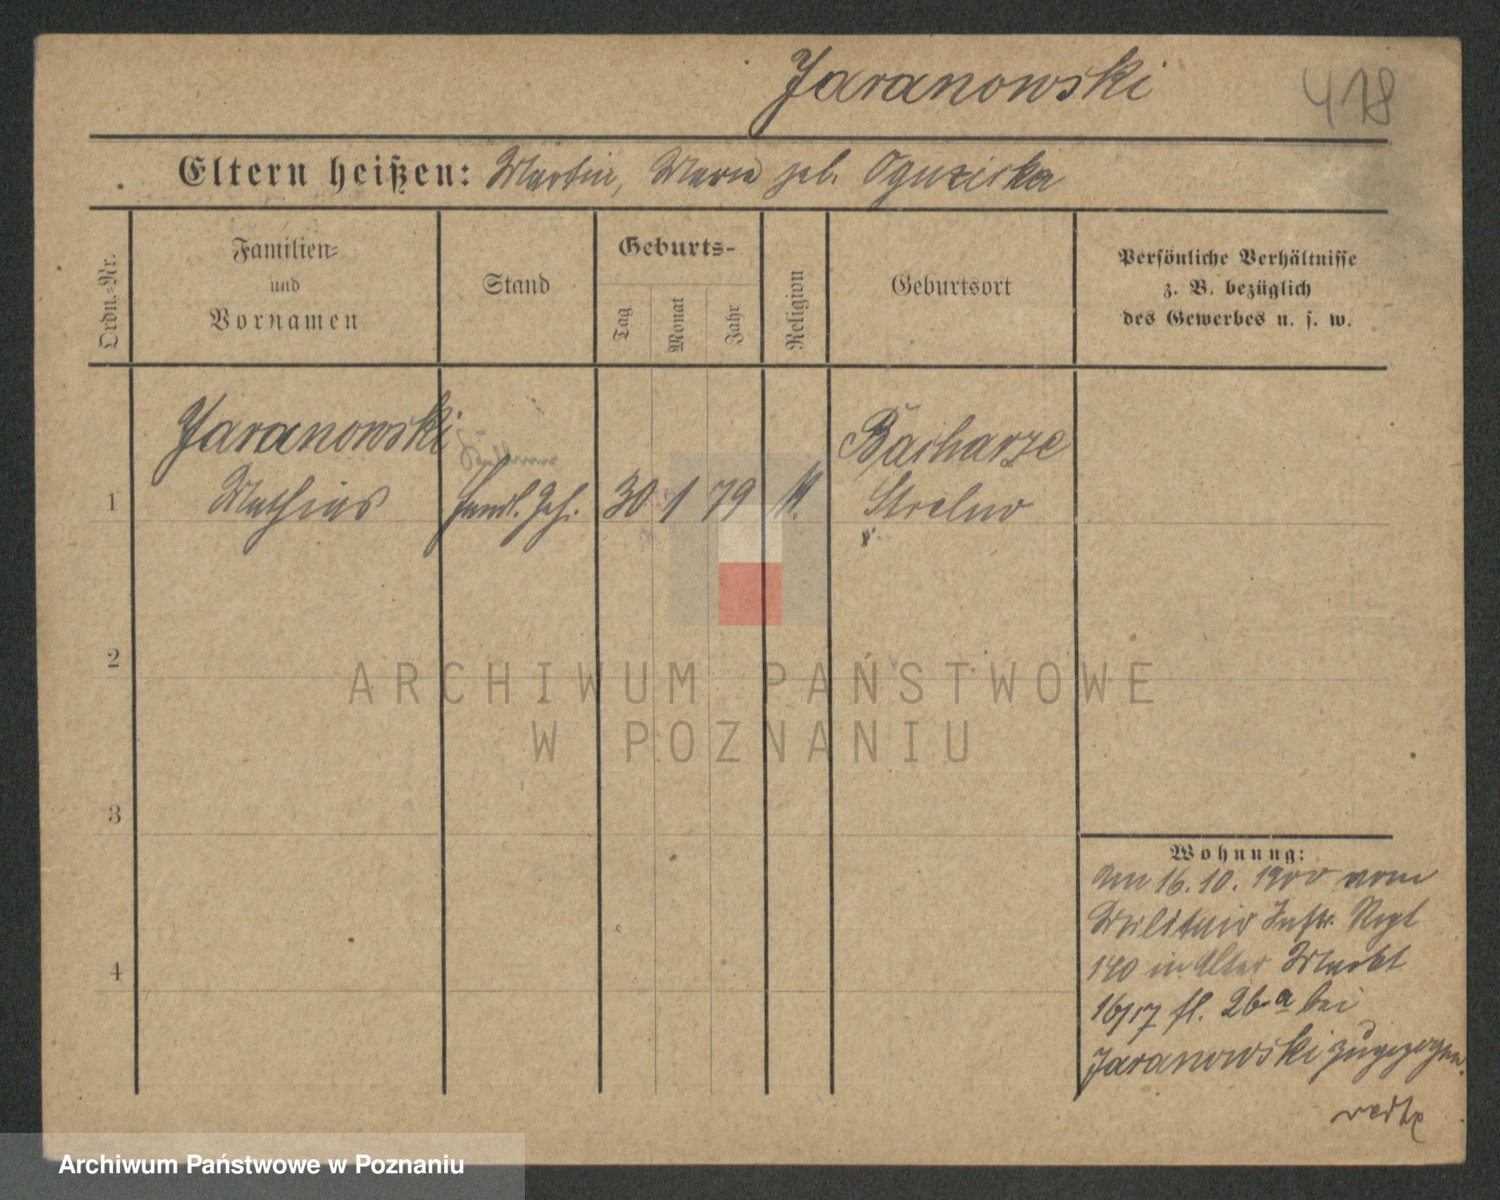 Jaranowski
418
Eltern heißen: Martin, Marie geb. Oguziska
Ordn.-Nr.
Familien-
und
Vornamen
Stand
Geburts-
Tag
Monat
Jahr
Religion
Geburtsort
Persönliche Verhältnisse
z. B. bezüglich
des Gewerbes u. s. w.
Jaranowski
Bacharze
1 Mathias Handl. Geh. 30 1 79 K. Strelno
2
3
4
Wohnung:
Am 16.10.1900 vom
Militair Inftr. Regt
140 in Alter Markt
16/17 fl. bei
Jaranowski zugezogen.
ARCHIWUM PAŃSTWOWE
W POZNANIU
Archiwum Państwowe w Poznaniu